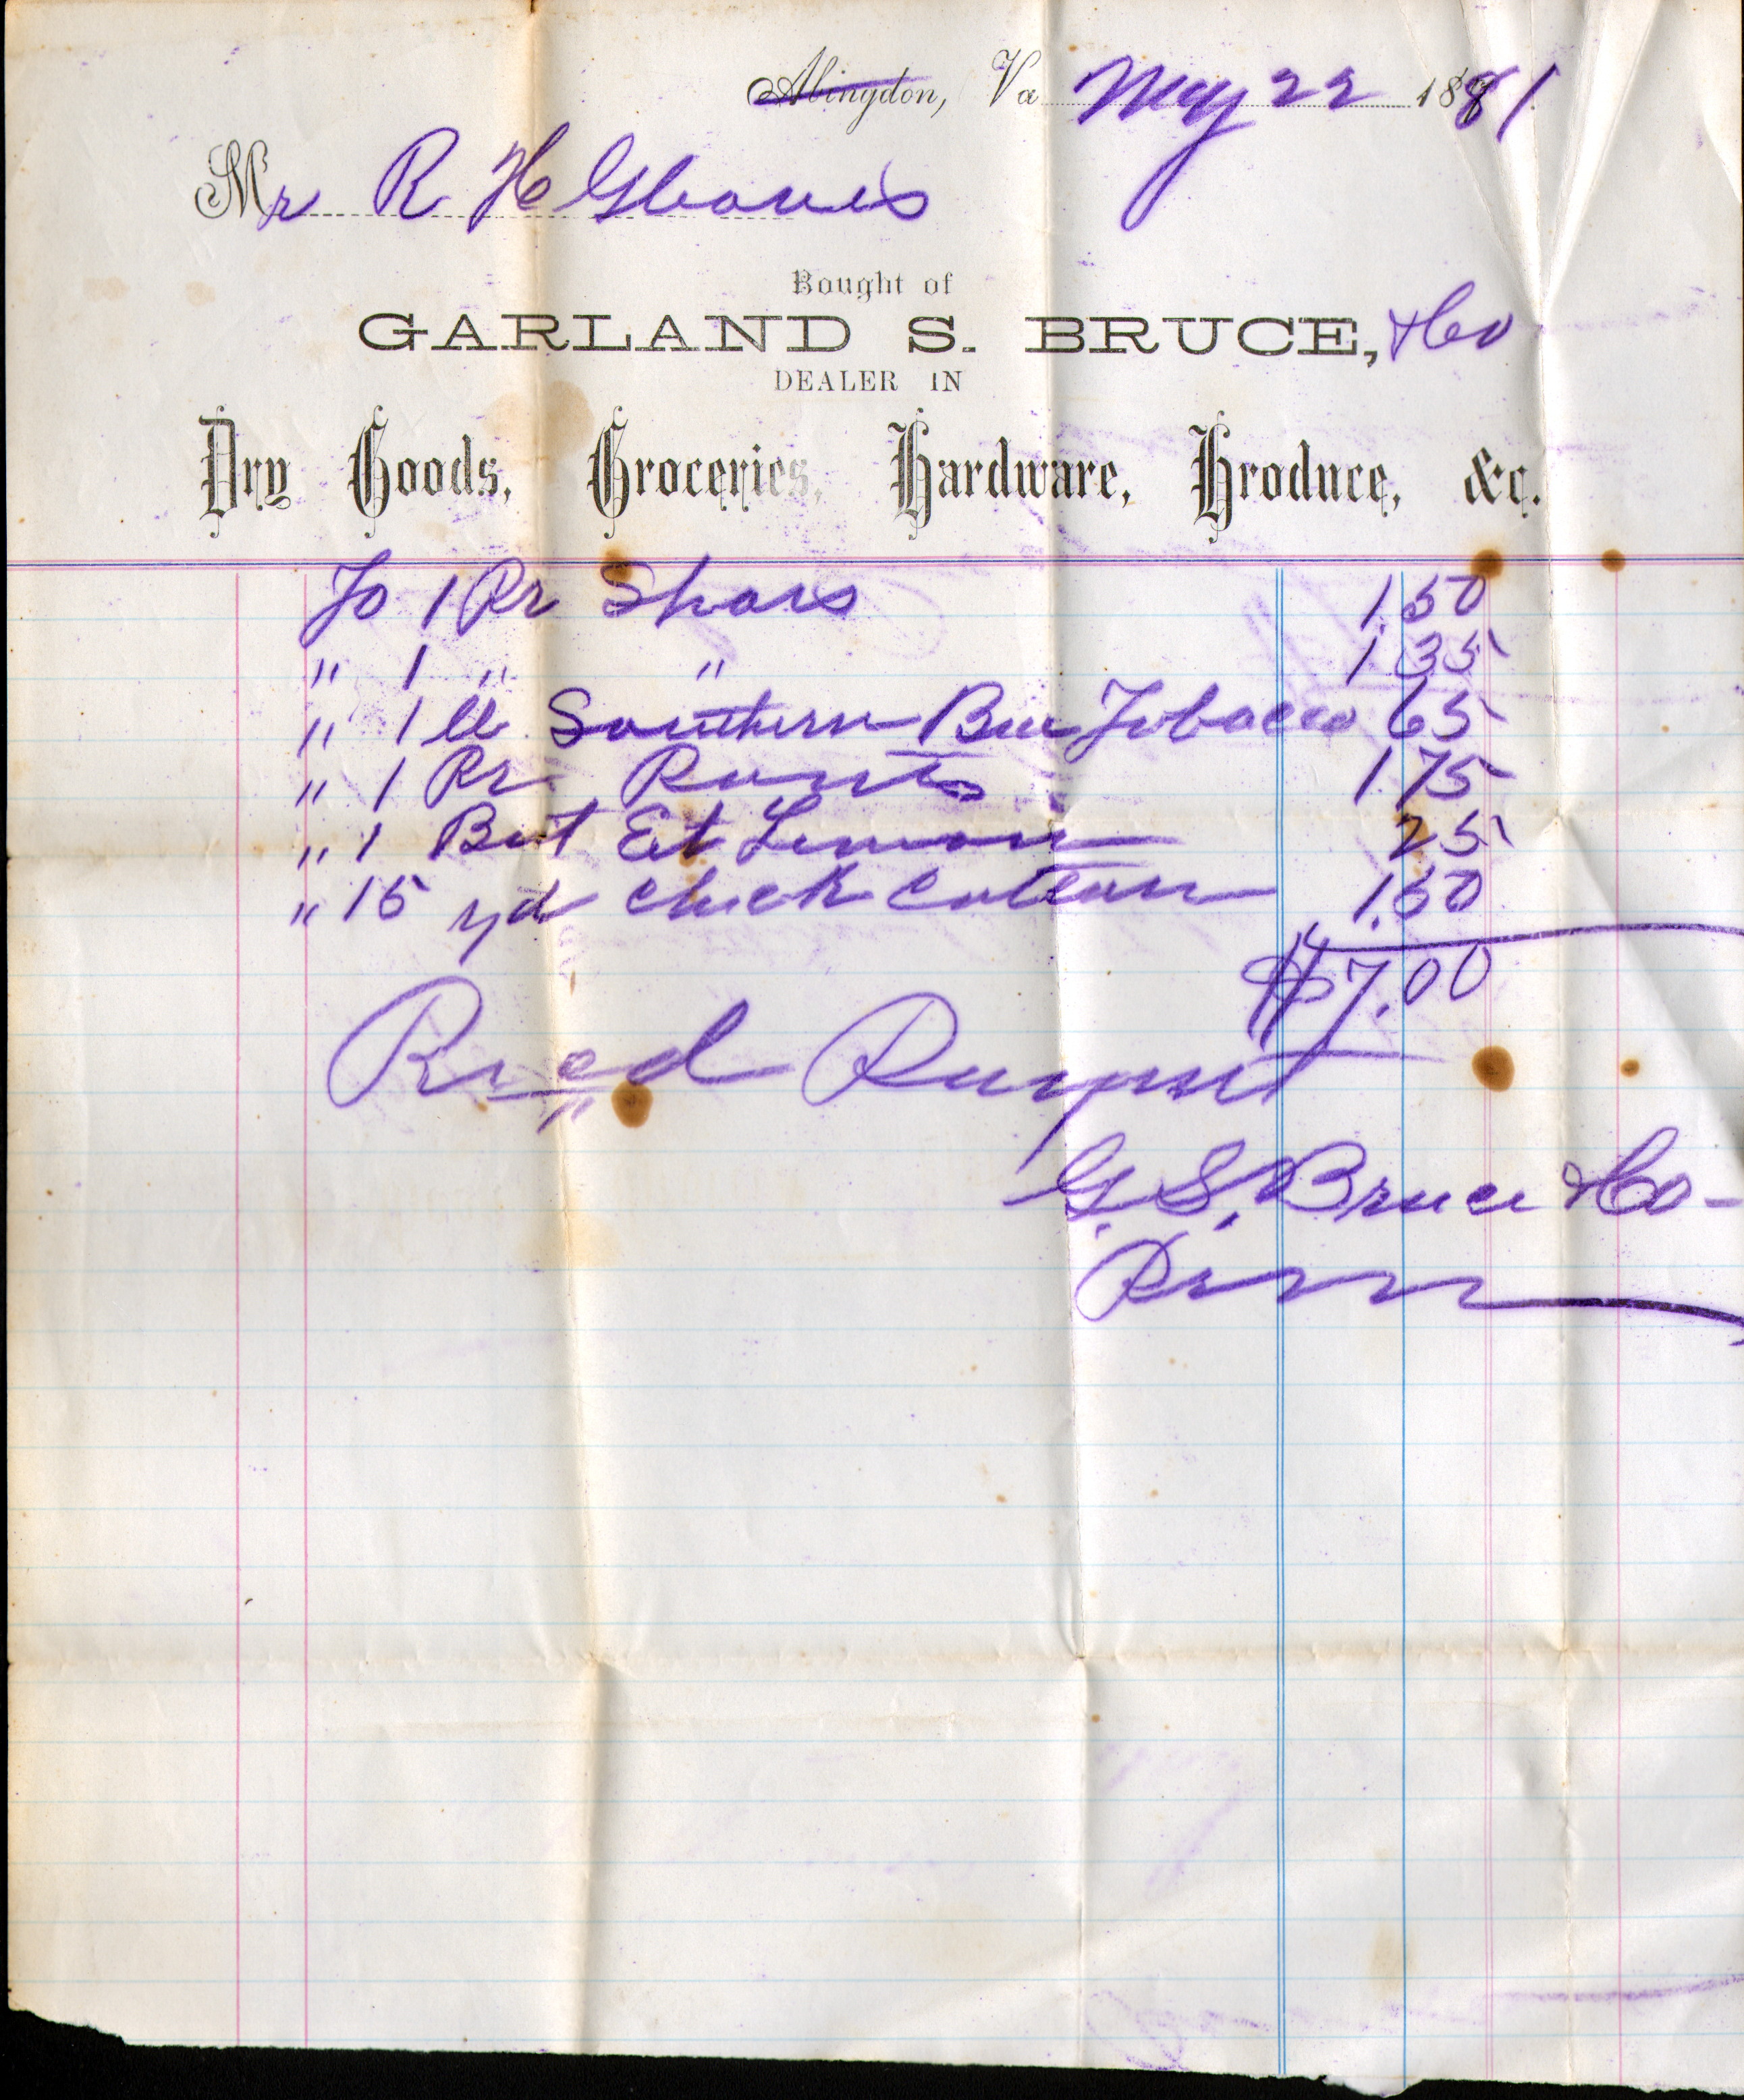 Abingdon, Va May 22 1881
Mr R H Gleaves
Bought of
GARLAND S. BRUCE, & Co
DEALER IN
Dry Goods, Groceries, Hardware, Produce, &c.
To 1 Pr Shoes 1.50
" 1 " " 1.35
" 1 lb Southern Bee Tobacco 65
" 1 Pr Pants 1.75
" 1 Bot Ext Lemon 25
" 15 yd Check Cotton 1.50
$7.00
Recd Paymet
G. S. Bruce & Co